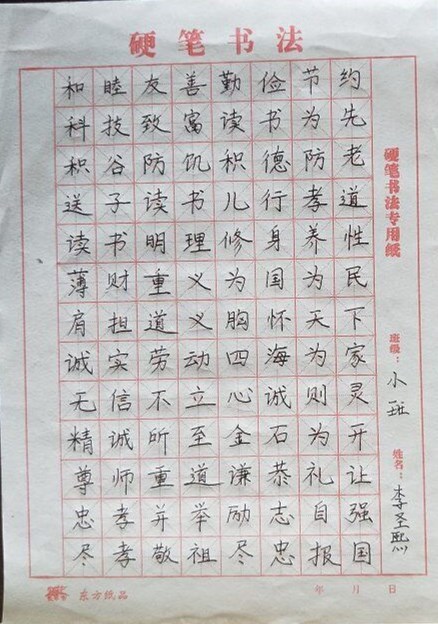 硬笔书法
和睦友善勤俭节约
科技致富读书为先
积谷防饥积德防老
送子读书儿行孝道
读书明理修身养性
薄财重义为国为民
肩担道义胸怀天下
诚实劳动四海为家
无信不立心诚则灵
精诚所至金石为开
尊师重道谦恭礼让
忠孝并举励志自强
尽孝敬祖尽忠报国
硬笔书法专用纸
班级：小班
姓名：李圣熙
东方纸品
年 月 日